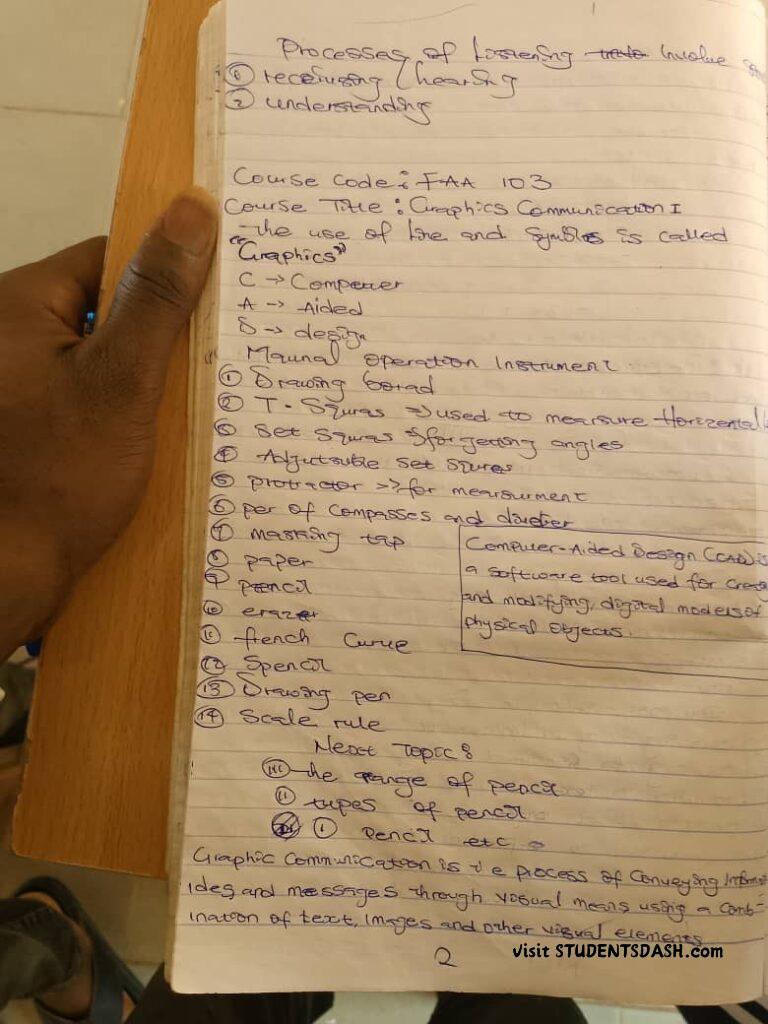 Processes of Listening involve
① receiving / hearing
② understanding
Course Code: FAA 103
Course Title: Graphics Communication I
The use of line and Symbols is called
"Graphics"
C → Computer
A → Aided
D → design
Maunal operation Instrument
① Drawing borad
② T. Squras => used to mearsure Horizontal
③ Set Squras => for getting angles
④ Adjutsuble set squres
⑤ protractor >> for measurment
⑥ per of compasses and divider
⑦ masking tap
⑧ paper
⑨ pencil
⑩ erazer
⑪ french Curve
⑫ Spencil
⑬ Drawing pen
⑭ Scale rule
Computer-Aided Design (CAD) is
a software tool used for
and modifying, digital models of
physical objects.
Next Topic:
(iii) the range of pencil
(ii) types of pencil
(i) pencil etc
Graphic Communication is the process of Conveying
ides and messages through visual means using a Comb-
ination of text, images and other visual elements
2
Visit STUDENTSDASH.com